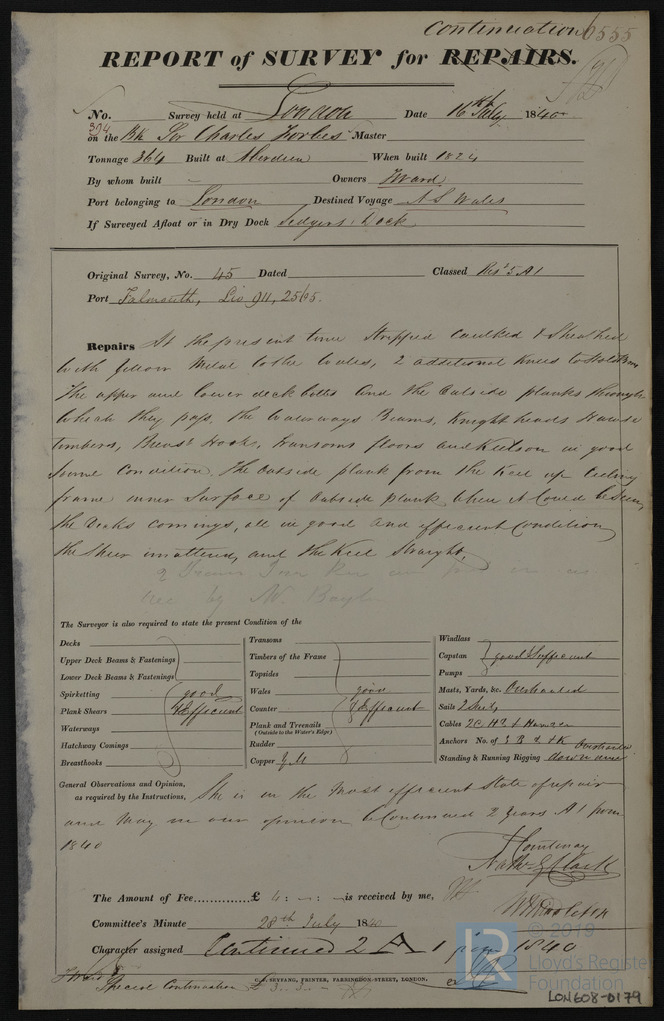 Continuation 6555
REPORT of SURVEY for REPAIRS.
No. Survey held at London Date 16th July 1840
394
on the Bk Sir Charles Forbes Master
Tonnage 364 Built at Aberdeen When built 1824
By whom built Owners Ward
Port belonging to London Destined Voyage N S Wales
If Surveyed Afloat or in Dry Dock Dock
Original Survey, No. 45 Dated Classed 5 A1
Port Falmouth, 911, 25/65.
Repairs At the present time Stripped Caulked & Sheathed
with Yellow Metal to the Wales, 2 additional Knees to
The upper and lower deck bolts and the Outside planks through
which they pass, the Waterways Beams, Knight heads Hawse
timbers, Breast Hooks, transoms floors and Keelson in good
Sound Condition. The Outside plank from the Keel up
frame inner Surface of Outside plank when it Could be Seen,
the Decks comings, all in good and efficient Condition
the Sheer unaltered, and the Keel Straight.
The Surveyor is also required to state the present Condition of the
Decks
Upper Deck Beams & Fastenings
Lower Deck Beams & Fastenings
Spirketting good
Plank Shears & Efficient
Waterways
Hatchway Comings
Breasthooks
Transoms
Timbers of the Frame
Topsides
Wales good
Counter & Efficient
Plank and Treenails
(Outside to the Water's Edge)
Rudder
Copper Y.M
Windlass
Capstan good & Sufficient
Pumps
Masts, Yards, &c. Overhauled
Sails 2 Suits
Cables 2 C H & 1 Hawser
Anchors No. of 3 B & 1 K
Standing & Running Rigging
General Observations and Opinion,
as required by the Instructions, She is in the most efficient State of repair
and May in our opinion be Continued 2 Years A1 from
1840
Courtenay
Nathl G Clark
The Amount of Fee £ 4: -: - is received by me,
W Middleton
Committee's Minute 28th July 1840
Character assigned Continued 2 A1 from 1840
Special Continuation £
PRINTER, FARRINGDON-STREET, LONDON.
© 2019
LR
Lloyd's Register
Foundation
LON608-0179